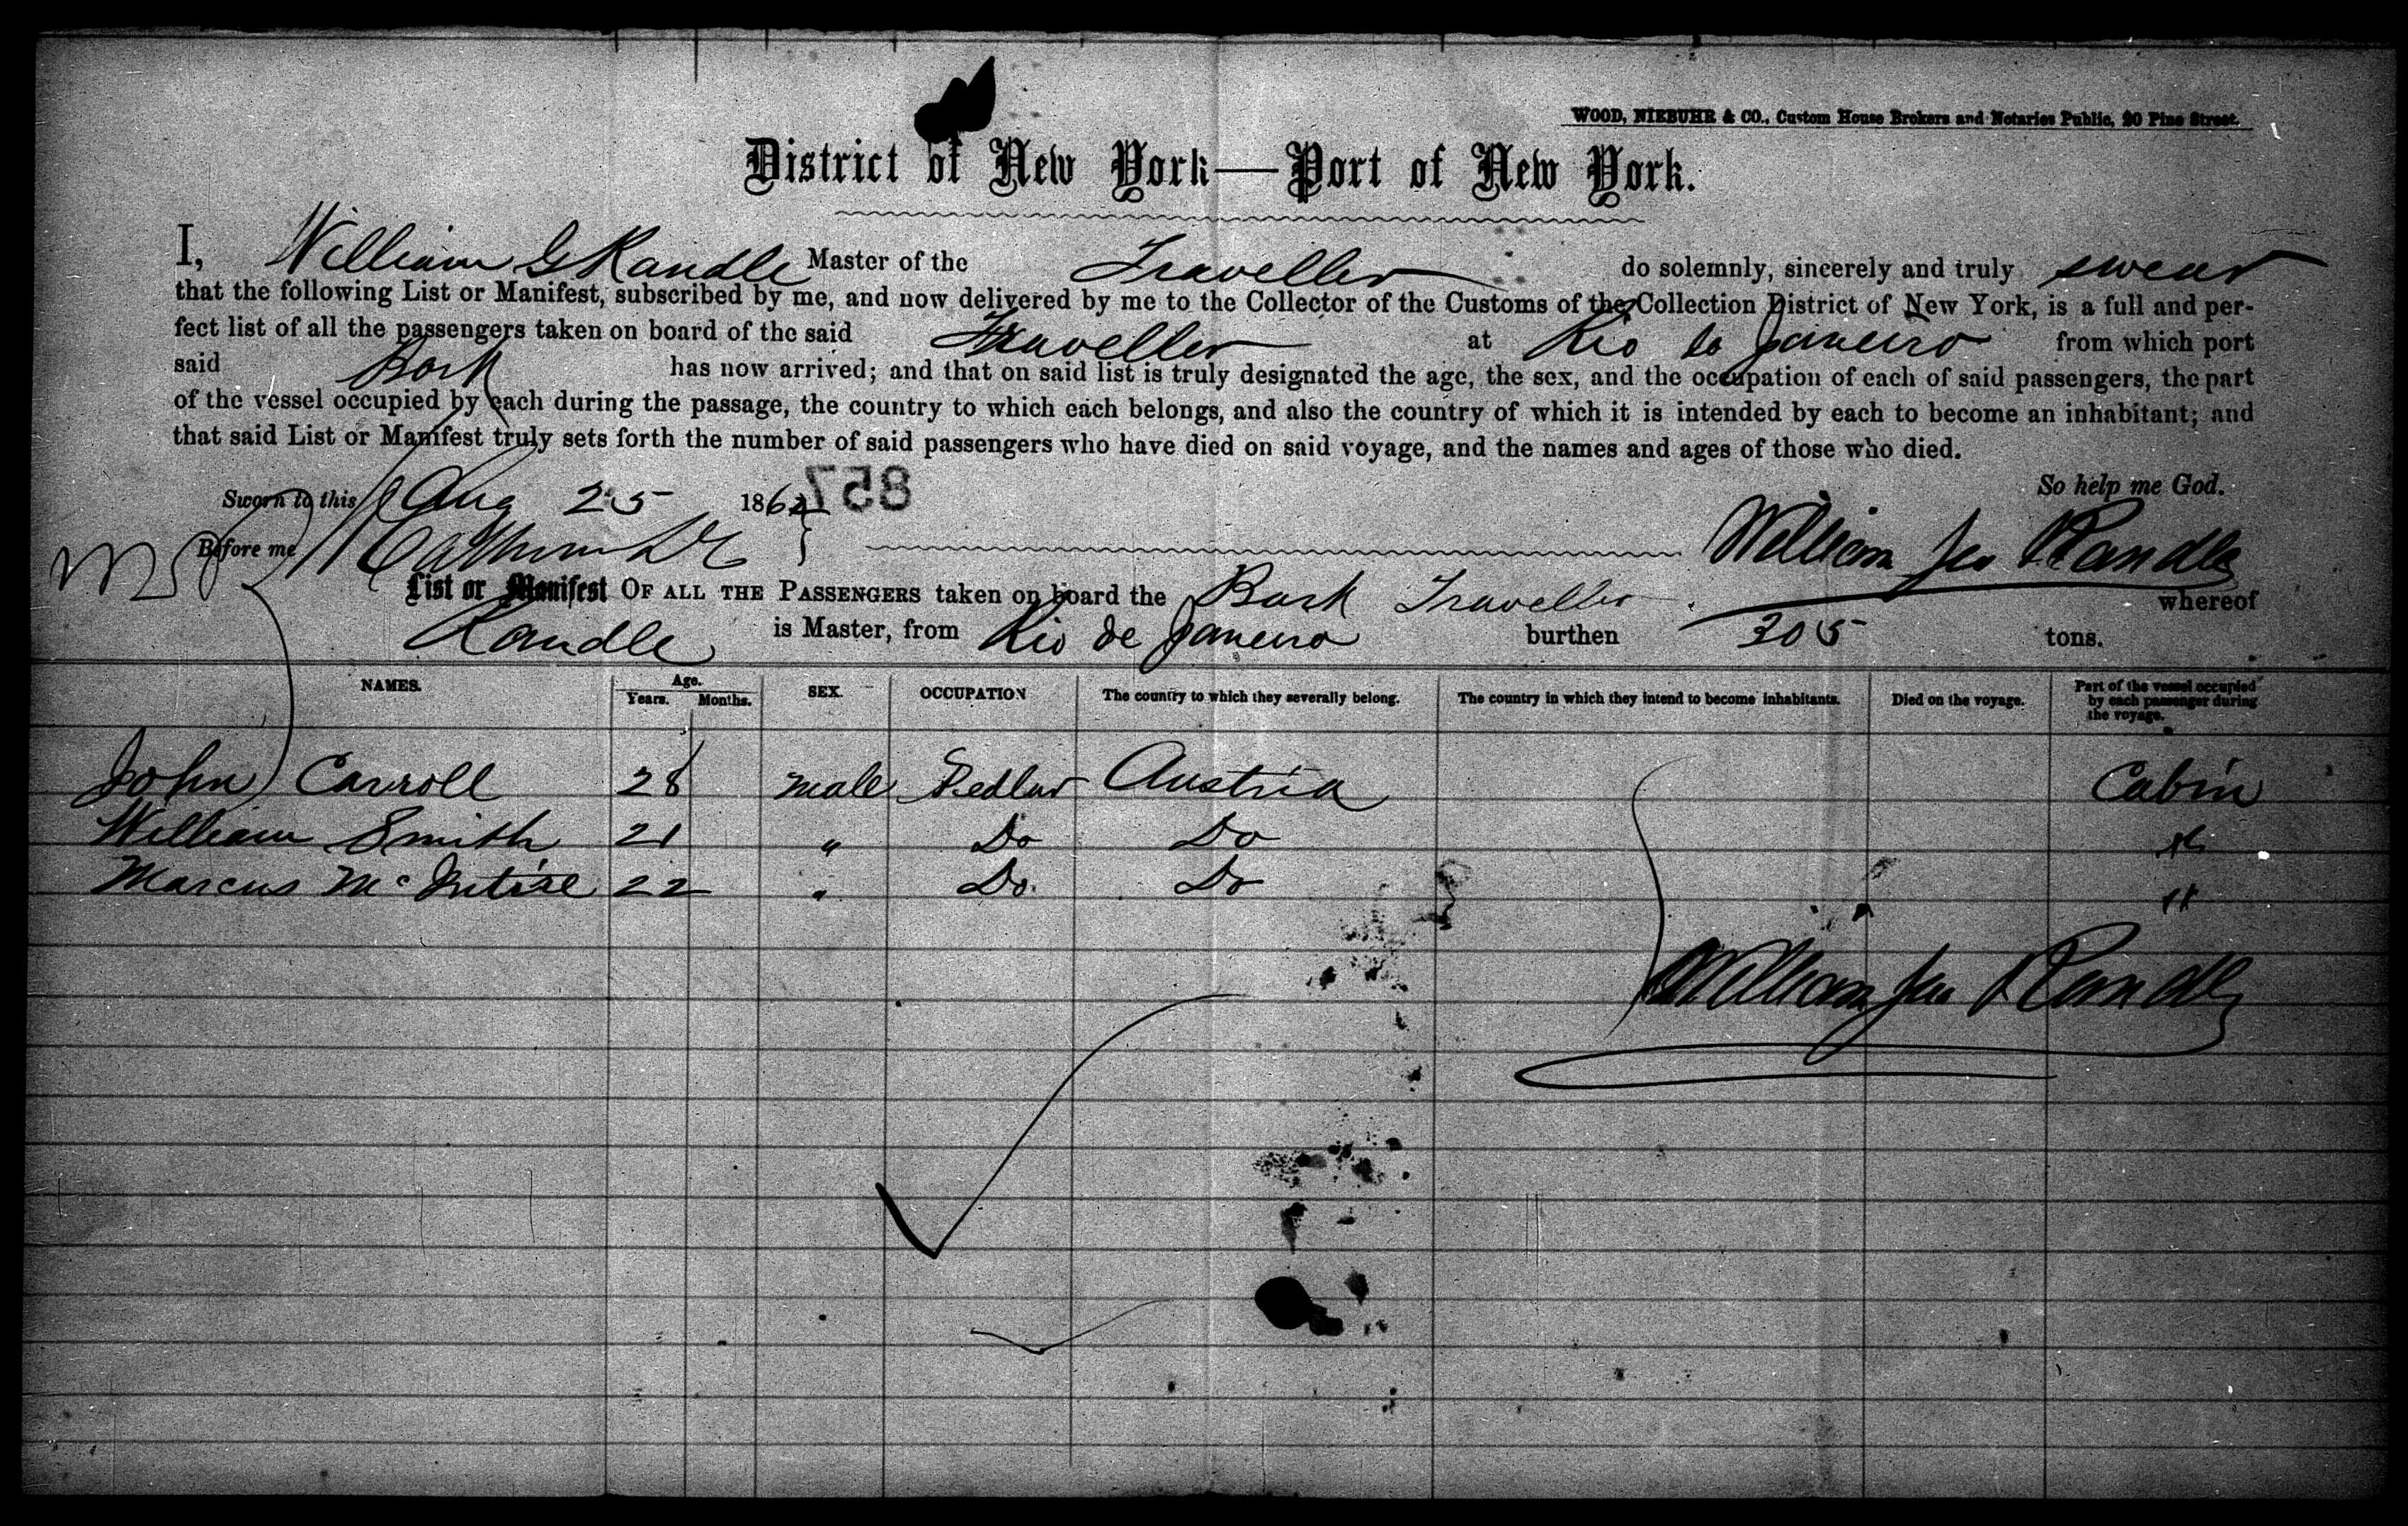 WOOD, NIEBUHR & CO., Custom House Brokers and Notaries Public, 20 Pine Street.
District of New York—Port of New York.
I, William G Randle Master of the Traveller do solemnly, sincerely and truly swear
that the following List or Manifest, subscribed by me, and now delivered by me to the Collector of the Customs of the Collection District of New York, is a full and per-
fect list of all the passengers taken on board of the said Traveller at Rio de Janeiro from which port
said Bark has now arrived; and that on said list is truly designated the age, the sex, and the occupation of each of said passengers, the part
of the vessel occupied by each during the passage, the country to which each belongs, and also the country of which it is intended by each to become an inhabitant; and
that said List or Manifest truly sets forth the number of said passengers who have died on said voyage, and the names and ages of those who died.
So help me God.
Sworn to this Aug 25 1862 857
Before me William Geo Randle
List or Manifest OF ALL THE PASSENGERS taken on board the Bark Traveller whereof
Randle is Master, from Rio de Janeiro burthen 305 tons.
NAMES. Age. Years. Months. SEX. OCCUPATION The country to which they severally belong. The country in which they intend to become inhabitants. Died on the voyage. Part of the vessel occupied by each passenger during the voyage.
John Carroll 28 male Pedlar Austria Cabin
William Smith 21 " Do Do "
Marcus McIntire 22 " Do. Do "
William Geo Randle